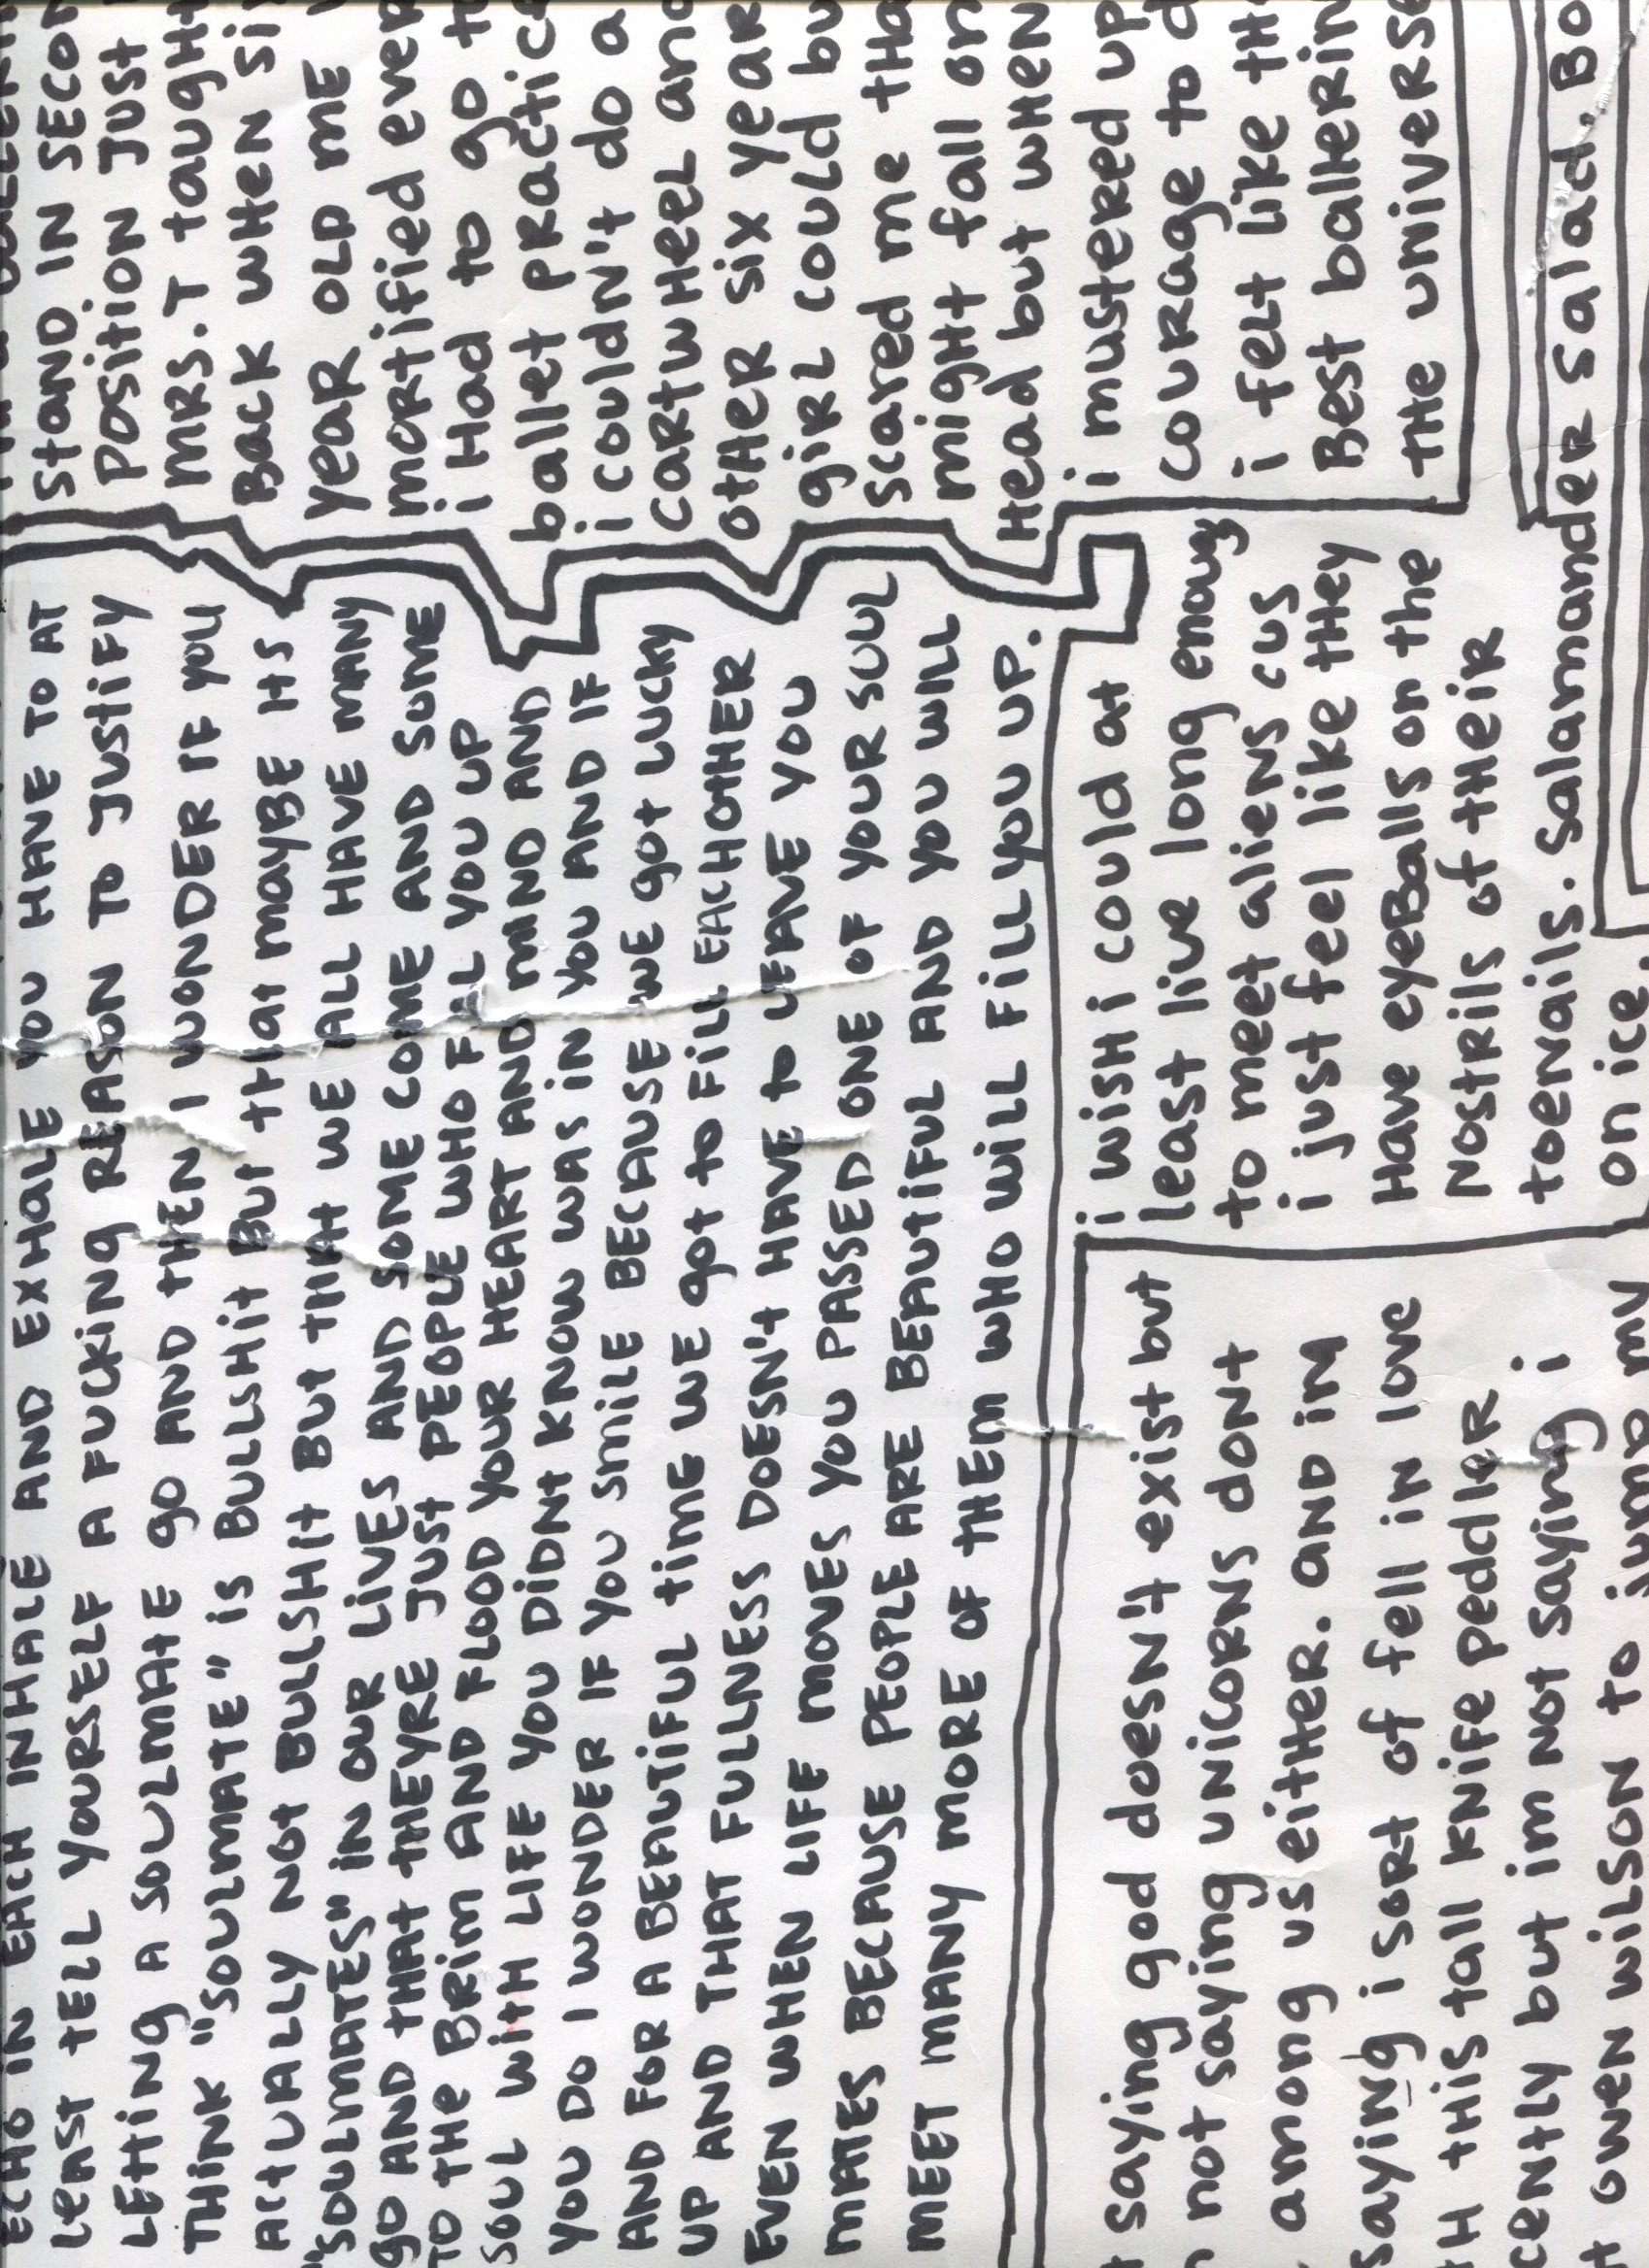 ECHO IN EACH INHALE AND EXHALE YOU HAVE TO AT
LEAST TELL YOURSELF A FUCKING REASON TO JUSTIFY
LETTING A SOULMATE gO AND THEN I WONDER IF YOU
THINK "SOULMATE" iS BULLSHIT BUT tHAt mAYBE ItS
ACTUALLY NOT BULLSHIT BUT THAT WE ALL HAVE MANY
"SOULMATES" IN OUR LIVES AND SOME COME AND SOME
gO AND tHAt tHEYRE JUST PEOPLE WHO FILL YOU UP
TO tHE BRim AND FLOOD YOUR HEART AND MIND AND
SOUL WitH LIFE YOU DIDNt KNOW WAS IN YOU AND IF
YOU DO I WONDER IF YOU SmILE BECAUSE WE gOt LUCKY
AND FOR A BEAUTIFUL tiME WE gOt tO FILL EACHOTHER
UP AND THAT FULLNESS DOESN't HAVE to LEAVE YOU
EVEN WHEN LIFE MOVES YOU PASSED ONE OF YOUR SOUL
MATES BECAUSE PEOPLE ARE BEAUTIFUL AND YOU WILL
MEET MANY MORE OF tHEm WHO WILL FiLL YOU UP.
StAND IN SECON
POSitiON JUSt
MRS. T taugHt
BACK WHEN Si
YEAR OLD ME
mortified ever
i HAd to go t
ballet practice
i couldn't do a
cartwHeel and
otHeR six yeaR
giRL couLd bu
scared me tHa
might fall on
HEad but wHEN
i mustered up
couRage to d
i feLt Like tH
Best ballerin
tHe uNiveRse
i wisH i could at
least live long enoug
to meet alieNs cus
i just feel like tHey
Have eyeBalls on the
Nostrils of tHeiR
toenails. salamander salad. Bo
on ice.
t saying god doesN't exist but
not saying uNicorNs doNt
among us either. and im
sayiNg i soRt of fell in love
tH tHis tall kNife peddler
ceNtly but im Not saying i
t oweN wilsoN to jump my